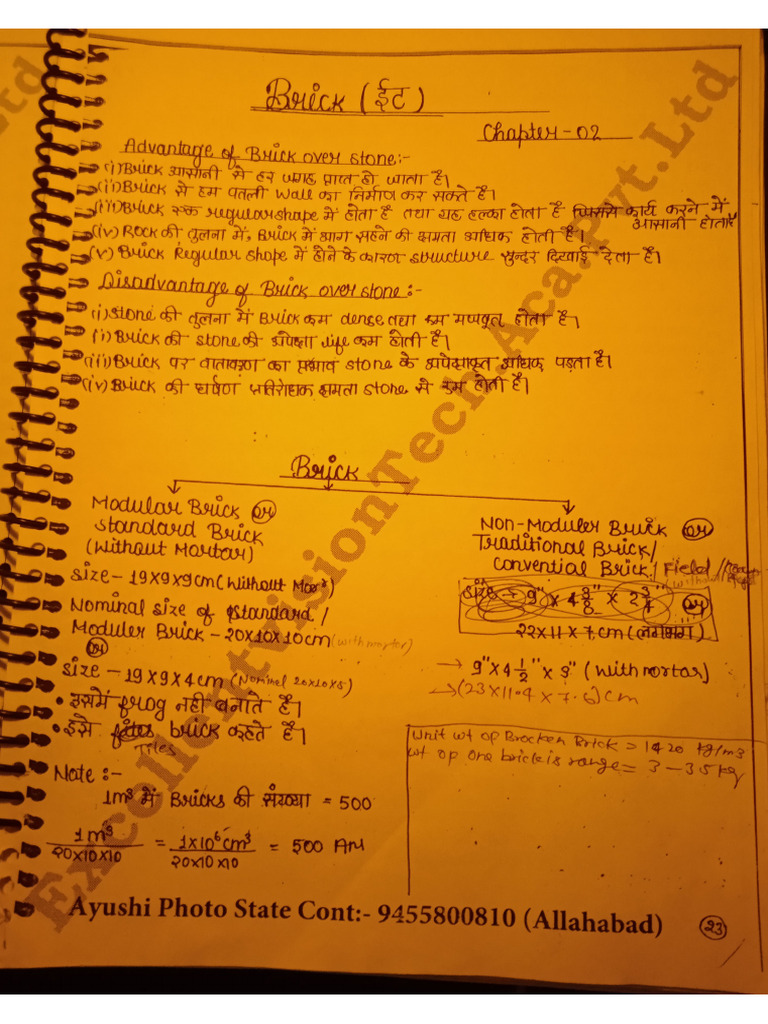 Brick (ईट)
Chapter-02
Advantage of Brick over stone:-
(i) Brick आसानी से हर जगह प्राप्त हो जाता है।
(ii) Brick से हम पतली wall का निर्माण कर सकते है।
(iii) Brick एक regular shape में होता है तथा यह हल्का होता है जिससे कार्य करने में
आसानी होता है
(iv) Rock की तुलना में, Brick में आग सहने की क्षमता अधिक होती है।
(v) Brick Regular shape में होने के कारण structure सुन्दर दिखाई देता है।
Disadvantage of Brick over stone:-
(i) stone की तुलना में Brick कम dense तथा कम मजबूत होता है।
(ii) Brick की stone की अपेक्षा life कम होती है।
(iii) Brick पर वातावरण का प्रभाव stone के अपेक्षाकृत अधिक पड़ता है।
(iv) Brick की घर्षण प्रतिरोधक क्षमता stone से कम होती है।
Brick
Modular Brick or
Standard Brick
(Without Mortar)
Size - 19x9x9cm (Without Mor)
Nominal size of standard/
Moduler Brick - 20x10x10cm (with morter)
or
Size - 19x9x4cm (Nominel 20x10x5)
• इसमें frog नहीं बनाते है।
• इसे brick कहते है।
Tiles
Note:-
1m³ में Bricks की संख्या = 500
1m³ / 20x10x10 = 1x10⁶cm³ / 20x10x10 = 500 An
Non-Moduler Brick or
Traditional Brick/
Convential Brick/ Field/
Size → 9" x 4 3/8" x 2 3/4" or
22x11x7cm (लगभग)
→ 9"x4 1/2"x3" (With mortar)
→ (23x11.4x7.6)cm
Unit wt op Brocken Brick = 1420 kg/m3
wt op one brick is range = 3-3.5 kg
Ayushi Photo State Cont:- 9455800810 (Allahabad)
23
ExcellentvisionTech.Aca.Pvt.Ltd
Ltd